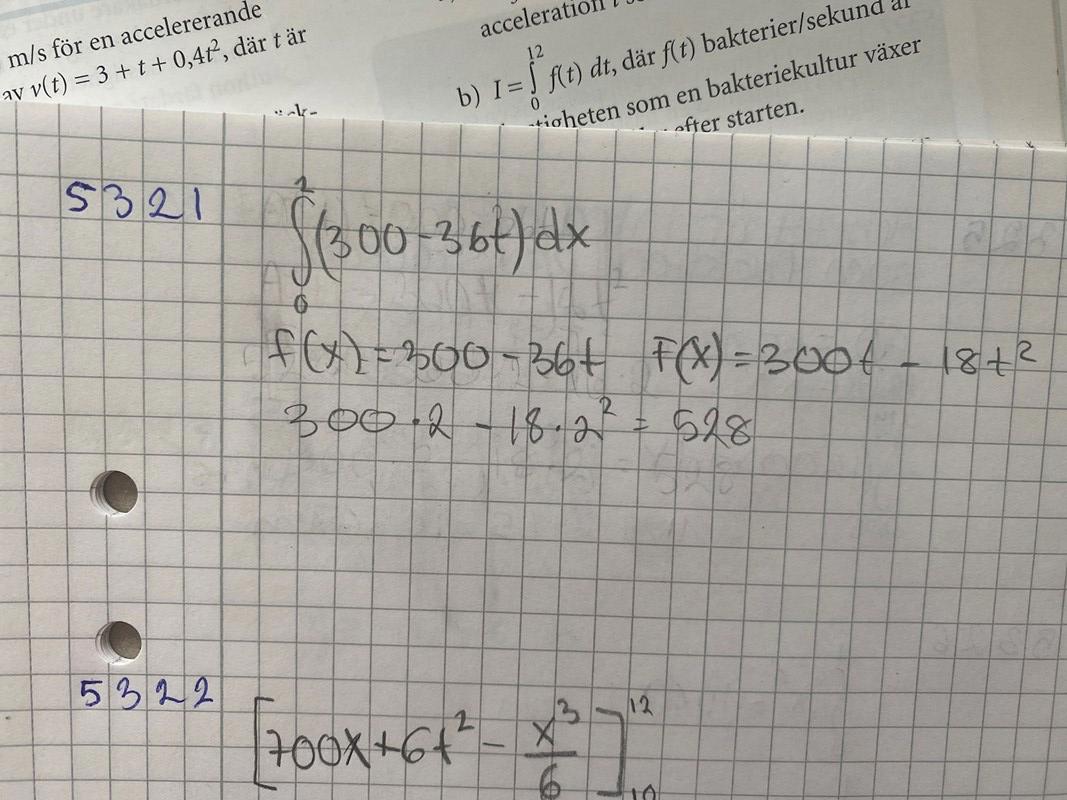 m/s för en accelererande
av v(t) = 3 + t + 0,4t², där t är
acceleration
b) I = ∫₀¹² f(t) dt, där f(t) bakterier/sekund är
tigheten som en bakteriekultur växer
efter starten.
5321
∫₀² (300 - 36t) dx
f(x) = 300 - 36t F(x) = 300t - 18t²
300 · 2 - 18 · 2² = 528
5322
[700x + 6t² - x³/6]₁₀¹²